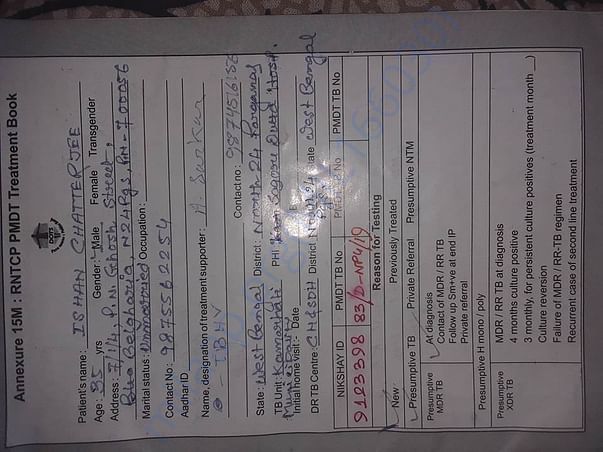 Annexure 15M : RNTCP PMDT Treatment Book
DOTS
Patient's name: ISHAN CHATTERJEE
Age: 35 yrs Gender: Male Female Transgender
Address: 7/1/4, P. N. Ghosh Street,
Belgharia, N24Pgs, PIN-700056
Marital status: Unmarried Occupation:
Contact No: 9875562254
Aadhar ID
Name, designation of treatment supporter: A. Sarkar
Contact no:
State: West Bengal District: North 24 Parganas
TB Unit: Kamarhati PHI: Sagore Dutta Hosp.
Municipality
Initial home visit:- Date
DR TB Centre: District North 24 State West Bengal
Pgs
NIKSHAY ID PMDT TB No PMDT TB No PMDT TB No
9123398 83/D-NPU/19
Reason for Testing
New Previously Treated
Presumptive TB Private Referral Presumptive NTM
Presumptive MDR TB
At diagnosis
Contact of MDR / RR TB
Follow up Sm+ve at end IP
Private referral
Presumptive H mono / poly
Presumptive XDR TB
MDR / RR TB at diagnosis
4 months culture positive
3 monthly, for persistent culture positives (treatment month __)
Culture reversion
Failure of MDR / RR-TB regimen
Recurrent case of second line treatment